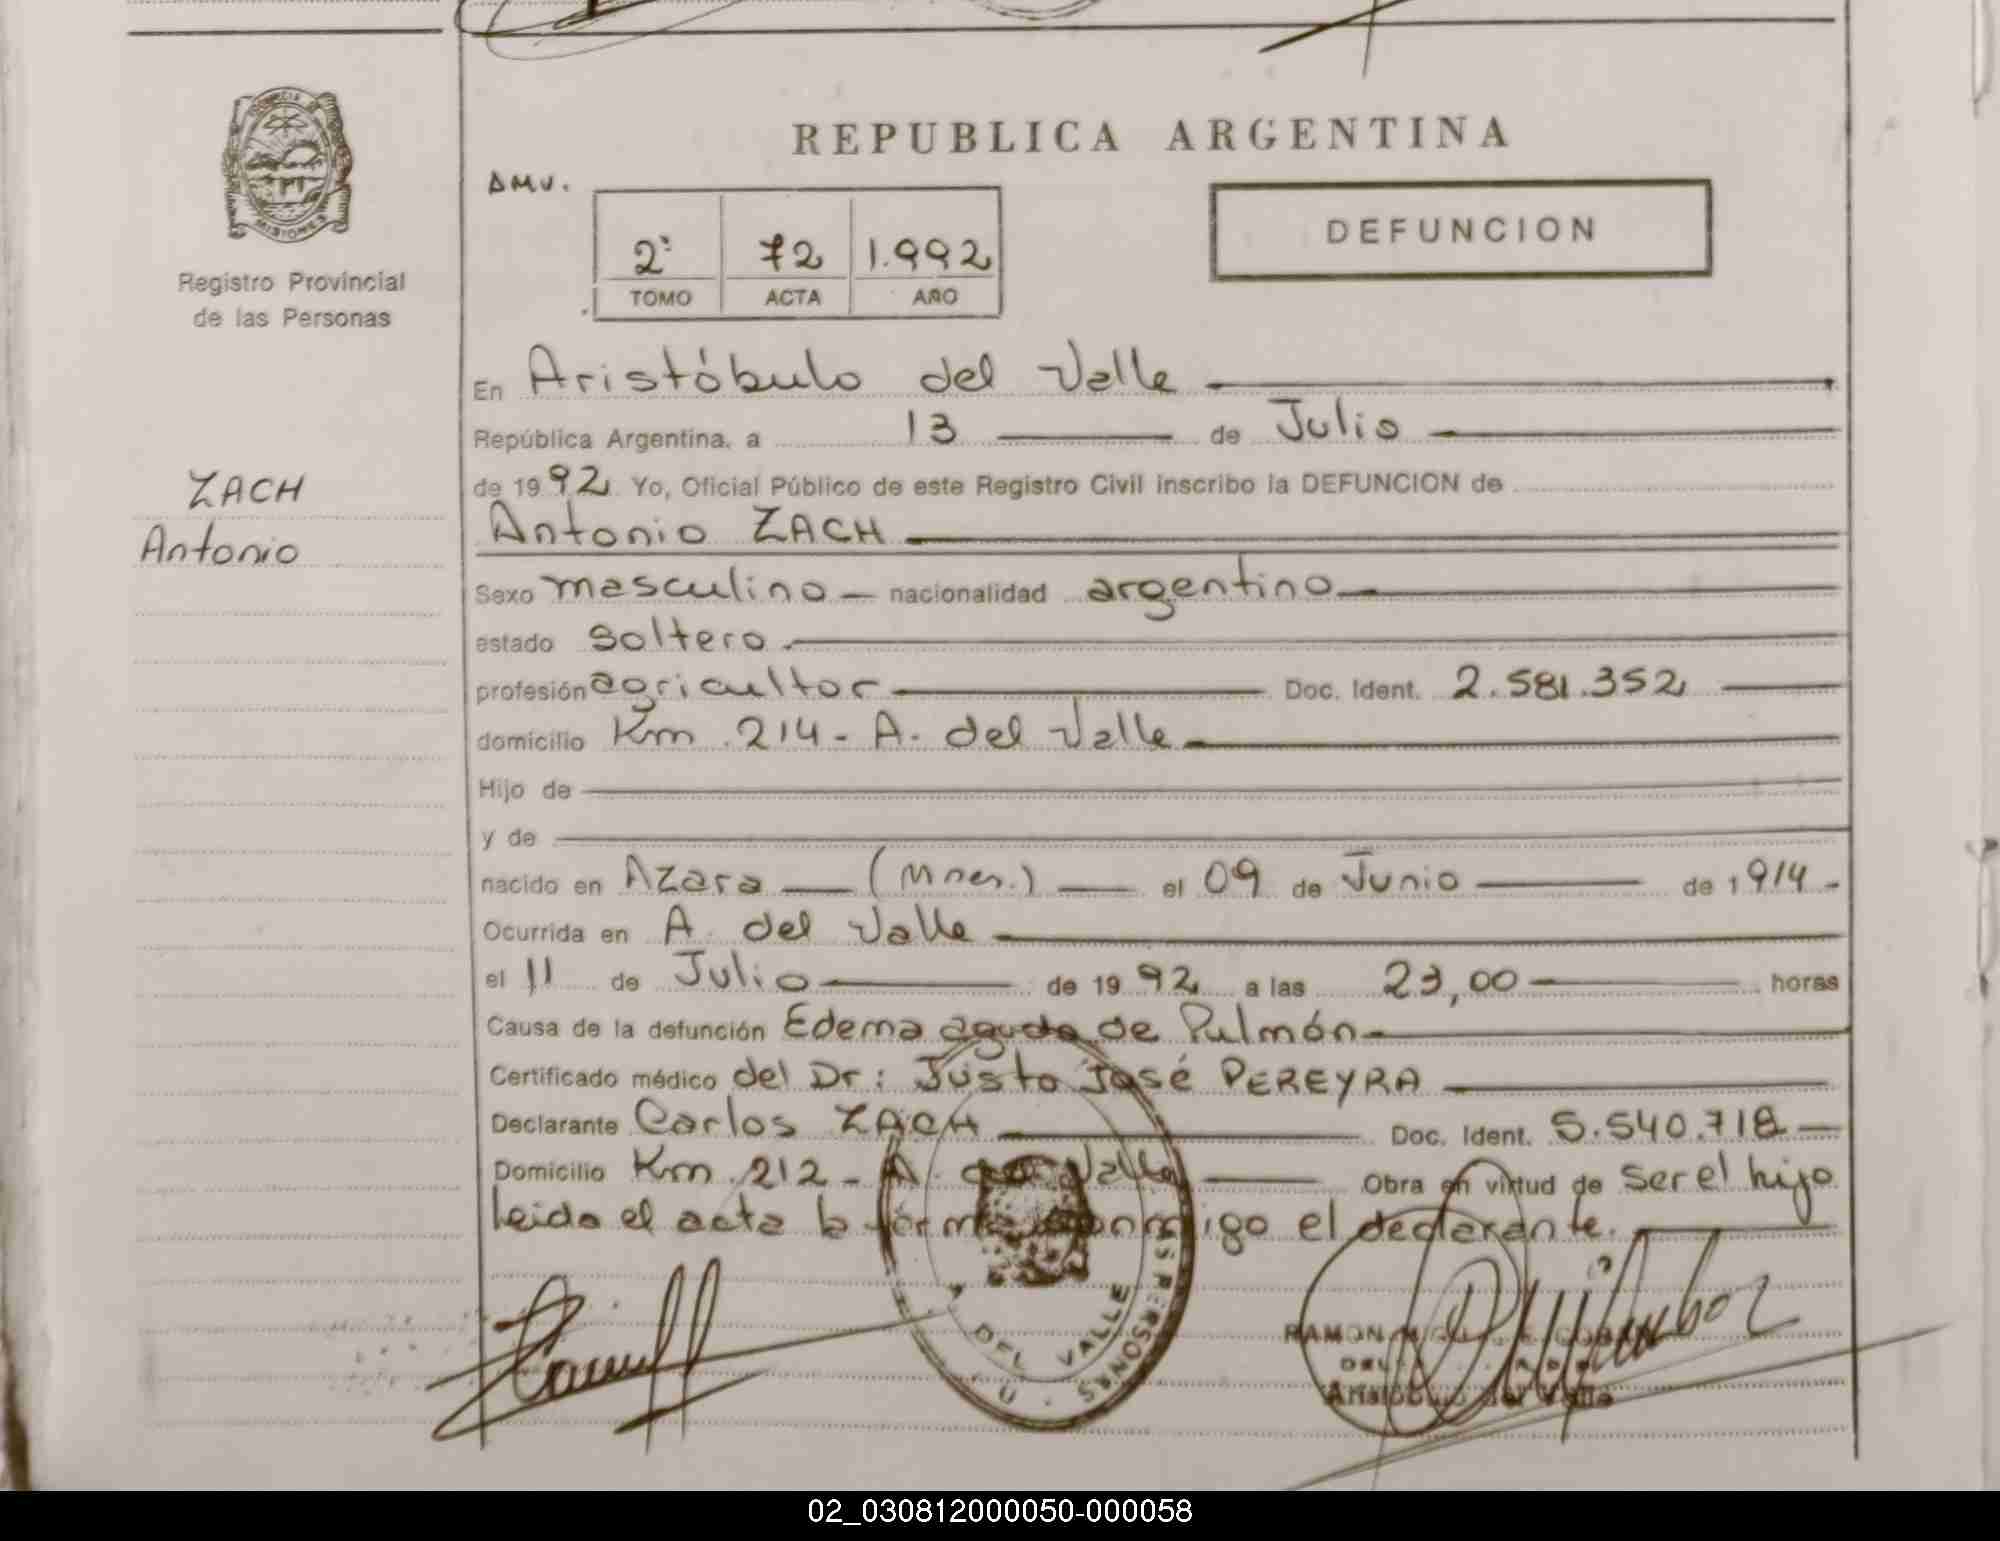 REPUBLICA ARGENTINA
PROVINCIA D
MISIONES
Registro Provincial
de las Personas
ZACH
Antonio
AMV.
2º 72 1.992
TOMO ACTA AÑO
DEFUNCION
En Aristóbulo del Valle
República Argentina, a 13 de Julio
de 1992 Yo, Oficial Público de este Registro Civil inscribo la DEFUNCION de
Antonio ZACH
Sexo masculino nacionalidad argentino
estado soltero
profesión agricultor Doc. Ident. 2.581.352
domicilio Km. 214 - A. del Valle
Hijo de
y de
nacido en Azara (Mnes.) el 09 de Junio de 1914
Ocurrida en A. del Valle
el 11 de Julio de 1992 a las 23,00 horas
Causa de la defunción Edema agudo de Pulmón
Certificado médico del Dr: Justo José PEREYRA
Declarante Carlos ZACH Doc. Ident. 5.540.718
Domicilio Km. 212 - A. del Valle Obra en virtud de ser el hijo
Leida el acta la firma conmigo el declarante.
DEL VALLE
AS PERSONAS
RAMON
Aristóbulo del Valle
02_030812000050-000058